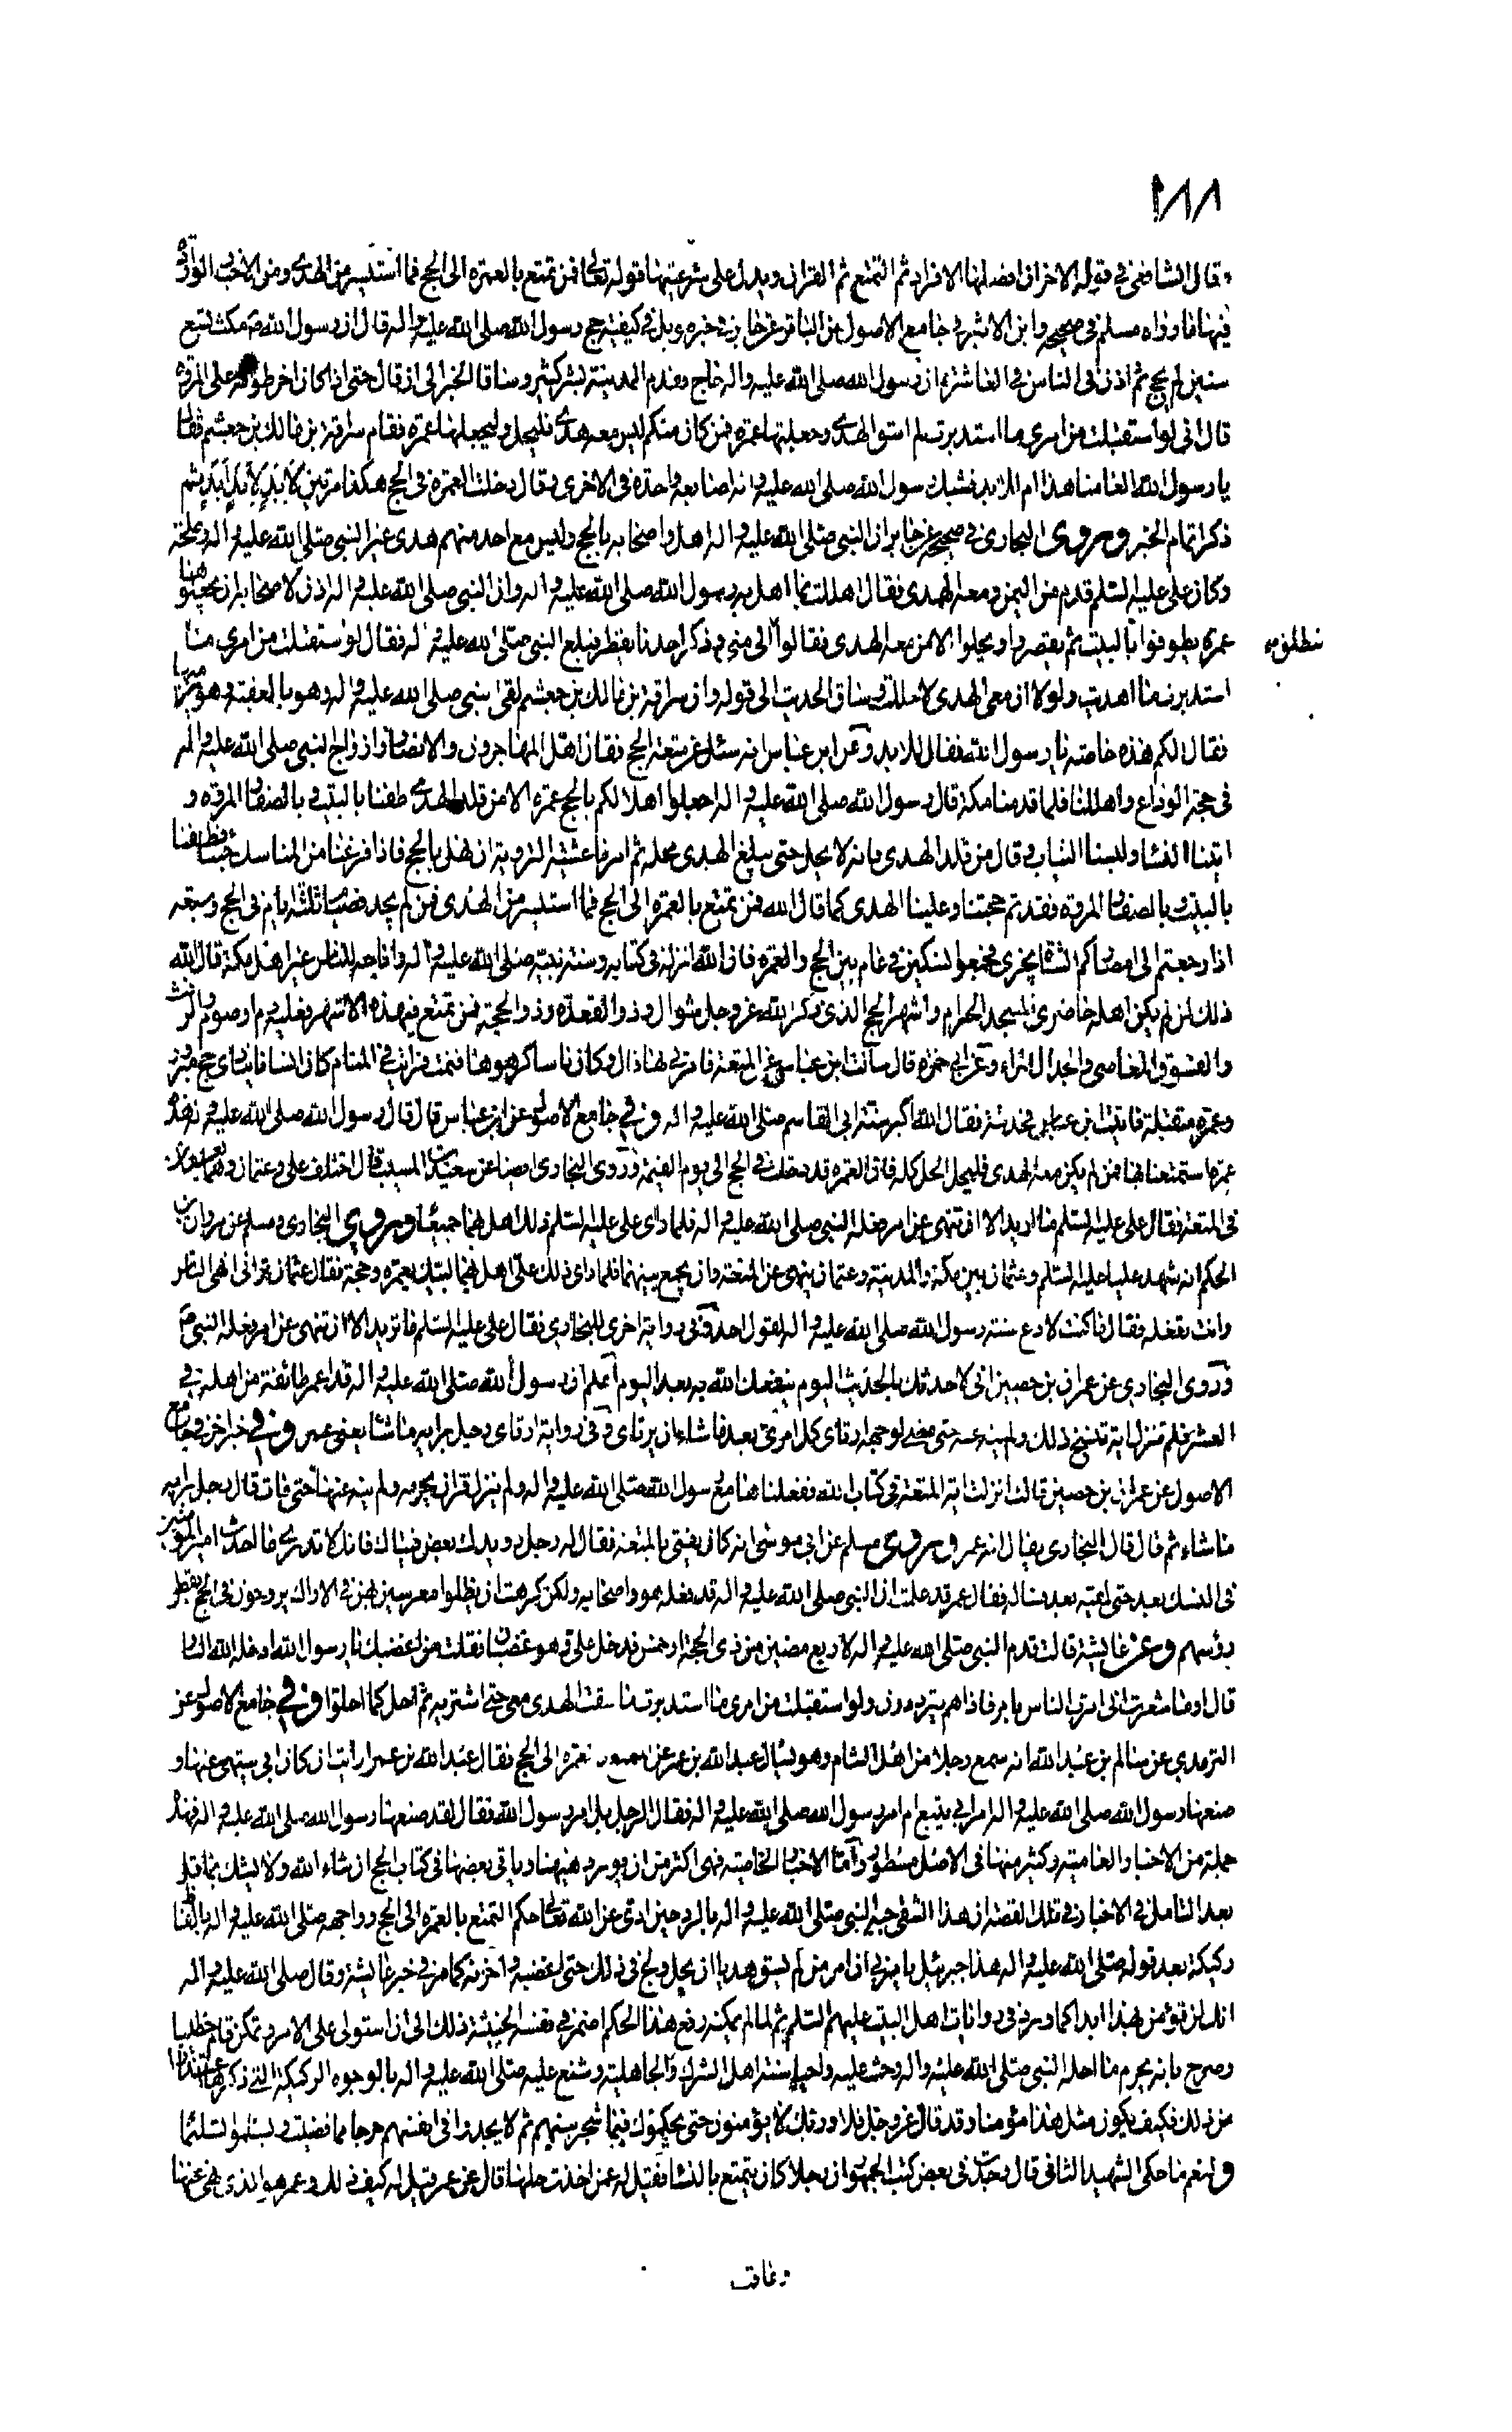 ١٨٨
قال الشافعي في قوله الاخر ان افضلها الافراد ثم التمتع ثم القران ويدل على شرعيتها قوله تعالى فمن تمتع بالعمرة الى الحج فما استيسر من الهدى ومن الاخبار الواردة
فيها ما رواه مسلم في صحيحه وابن الاثير في جامع الاصول عن الباقر عن جابر في خبر طويل في كيفية حج رسول الله صلى الله عليه واله قال ان رسول الله ص مكث تسع
سنين لم يحج ثم اذن في الناس في العاشر ان رسول الله صلى الله عليه واله حاج فقدم المدينة بشر كثير وساقا الخبر الى ان قال حتى اذا كان اخر طوافه على المروة
قال انى لو استقبلت من امرى ما استدبرت لم اسق الهدى وجعلتها عمرة فمن كان منكم ليس معه هدى فليحل وليجعلها عمرة فقام سراقة بن مالك بن جعشم فقال
يا رسول الله العامنا هذا ام للابد فشبك رسول الله صلى الله عليه واله اصابعه واحدة في الاخرى وقال دخلت العمرة في الحج هكذا مرتين لا بل لابد ابد ثم
ذكرا تمام الخبر وروى البخارى في صحيحه عن جابر ان النبى صلى الله عليه واله اهل واصحابه بالحج وليس مع احد منهم هدى غير النبى صلى الله عليه واله وطلحة
وكان على عليه السلم قدم من اليمن ومعه الهدى فقال اهللت بما اهل به رسول الله صلى الله عليه واله وان النبى صلى الله عليه واله اذن لاصحابه ان يجعلوها
عمرة يطوفوا بالبيت ثم يقصروا ويحلوا الا من معه الهدى فقالوا الى منى وذكر احدنا يقطر فبلغ النبى صلى الله عليه واله فقال لو استقبلت من امرى ما
ننطلق
استدبرت ما اهديت ولولا ان معى الهدى لاحللت وساق الحديث الى قوله وان سراقة بن مالك بن جعشم لقى النبى صلى الله عليه واله وهو بالعقبة وهو يرميها
فقال الكم هذه خاصة يا رسول الله فقال للابد وعن ابن عباس انه سئل عن متعة الحج فقال اهل المهاجرون والانصار وازواج النبى صلى الله عليه واله
في حجة الوداع واهللنا فلما قدمنا مكة قال رسول الله صلى الله عليه واله اجعلوا اهلالكم بالحج عمرة الا من قلد الهدى طفنا بالبيت وبالصفا والمروة و
اتينا النساء ولبسنا الثياب وقال من قلد الهدى فانه لا يحل حتى يبلغ الهدى محله ثم امرنا عشية التروية ان نهل بالحج فاذا فرغنا من المناسك جئنا فطفنا
بالبيت وبالصفا والمروة فقد تم حجتنا وعلينا الهدى كما قال الله فمن تمتع بالعمرة الى الحج فما استيسر من الهدى فمن لم يجد فصيام ثلثة ايام في الحج وسبعة
اذا رجعتم الى امصاركم الشاة يجزى فجمعوا نسكين في عام بين الحج والعمرة فان الله انزله في كتابه وسنة نبيه صلى الله عليه واله واباحه للناس غير اهل مكة قال الله
ذلك لمن لم يكن اهله حاضرى المسجد الحرام واشهر الحج الذى ذكر الله عز وجل شوال وذو القعدة وذو الحجة فمن تمتع في هذه الاشهر فعليه دم او صوم والرفث
والفسوق المعاصى والجدال المراء وعن ابى حمزة قال سألت ابن عباس عن المتعة فامرنى بها قال وكان ناسا كرهوها فنمت فرايت في المنام كان انسانا ينادى حج مبرور
وعمرة متقبلة فاتيت ابن عباس فحدثته فقال الله اكبر سنة ابى القاسم صلى الله عليه واله وفي جامع الاصول عن ابن عباس قال قال رسول الله صلى الله عليه واله هذه
عمرة استمتعنا بها فمن لم يكن معه الهدى فليحل الحل كله فان العمرة قد دخلت في الحج الى يوم القيمة وروى البخارى ايضا عن سعيد بن المسيب قال اختلف على وعثمان وهما بعسفان
في المتعة فقال على عليه السلم ما اريد الا ان تنهى عن امر فعله النبى صلى الله عليه واله فلما راى على عليه السلم ذلك اهل بهما جميعا وروى البخارى ومسلم عن مروان بن
الحكم انه شهد عليا عليه السلم وعثمان بين مكة والمدينة وعثمان ينهى عن المتعة وان يجمع بينهما فلما راى ذلك على اهل بهما لبيك بعمرة وحجة فقال عثمان ترانى انهى الناس
وانت تفعله فقال ما كنت لادع سنة رسول الله صلى الله عليه واله لقول احد وفى رواية اخرى للبخارى فقال على عليه السلم ما تريد الا ان تنهى عن امر فعله النبى ص
وروى البخارى عن عمران بن حصين انى لاحدثك بالحديث اليوم ينفعك الله به بعد اليوم اعلم ان رسول الله صلى الله عليه واله قد اعمر طائفة من اهله في
العشر فلم تنزل اية تنسخ ذلك ولم ينه عنه حتى مضى لوجهه ارتاى كل امرئ بعد ما شاء ان يرتاى وفى رواية ارتاى رجل برايه ما شاء يعنى عمر وفي خبر اخر في جامع
الاصول عن عمران بن حصين قال انزلت اية المتعة في كتاب الله ففعلناها مع رسول الله صلى الله عليه واله ولم ينزل قران يحرمه ولم ينه عنها حتى مات قال رجل برايه
ما شاء ثم قال قال البخارى يقال انه عمر وروى مسلم عن ابى موسى انه كان يفتى بالمتعة فقال له رجل رويدك بعض فتياك فانك لا تدرى ما احدث امير المؤمنين
في النسك بعد حتى لقيه بعد فساله فقال عمر قد علمت ان النبى صلى الله عليه واله قد فعله هو واصحابه ولكن كرهت ان يظلوا معرسين بهن في الاراك يروحون في الحج يقطر
رؤسهم وعن عايشة قالت قدم النبى صلى الله عليه واله لاربع مضين من ذى الحجة او خمس فدخل على وهو غضبان فقلت من اغضبك يا رسول الله ادخله الله النار
قال او ما شعرت انى امرت الناس بامر فاذا هم يترددون ولو استقبلت من امرى ما استدبرت ما سقت الهدى معى حتى اشتريه ثم احل كما احلوا وفي جامع الاصول عن
الترمذي عن سالم بن عبد الله انه سمع رجلا من اهل الشام وهو يسال عبد الله بن عمر عن العمرة الى الحج فقال عبد الله بن عمر ارايت ان كان ابى ينهى عنها و
صنعها رسول الله صلى الله عليه واله امر ابى يتبع ام امر رسول الله صلى الله عليه واله فقال الرجل بل امر رسول الله فقال لقد صنعها رسول الله صلى الله عليه واله فهذه
جملة من الاخبار العامية وكثير منها في الاصل مسطور واما الاخبار الخاصية فهى اكثر من ان يورد هيهنا وياتى بعضها في كتاب الحج ان شاء الله ولا يشك عاقل
بعد التامل في الاخبار في تلك القصة ان هذا الشقى جبه النبى صلى الله عليه واله بالرد حين ادى عن الله تعالى حكم التمتع بالعمرة الى الحج وواجهه صلى الله عليه واله بالفاظ
ركيكة بعد قوله صلى الله عليه واله هذا جبرئيل يامرنى ان امر من لم يسق هديا ان يحل ولج في ذلك حتى اغضبه واحزنه كما مر في خبر عايشة وقال صلى الله عليه واله
انك لن تؤمن بهذا ابدا كما ورد في روايات اهل البيت عليهم السلم ثم لما لم يمكنه رفع هذا الحكم اضمر في نفسه الخبيثة ذلك الى ان استولى على الامر وتمكن فقام خطيبا
وصرح بانه يحرم ما احله النبى صلى الله عليه واله وحث عليه واحيا سنة اهل الشرك والجاهلية وشنع عليه صلى الله عليه واله بالوجوه الركيكة التى ذكرها
عن ذلك فكيف يكون مثل هذا مؤمنا وقد قال عز وجل فلا وربك لا يؤمنون حتى يحكموك فيما شجر بينهم ثم لا يجدوا في انفسهم حرجا مما قضيت ويسلموا تسليما
ولنعم ما حكى الشهيد الثانى قال وجدت في بعض كتب الجمهور ان رجلا كان يتمتع بالنساء فقيل له عمن اخذت حلها قال عن عمر قيل له كيف ذلك وعمر هو الذى نهى عنها
وعاقب